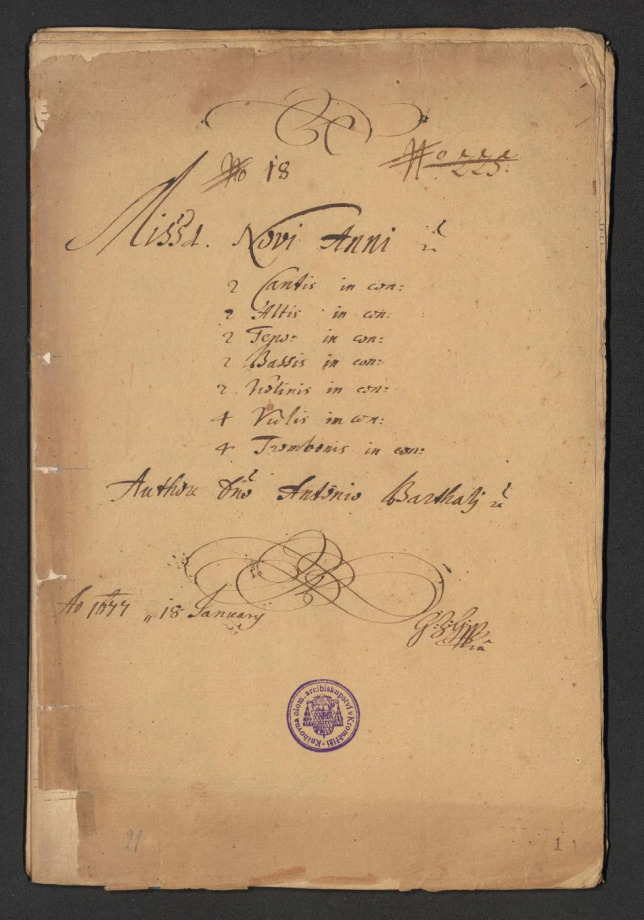 No 18 No 225.
Missa. Novi Anni
2 Cantis in con:
2 Altis in con:
2 Teno: in con:
2 Bassis in con:
2 Violinis in con:
4 Violis in con:
4 Trombonis in con:
Authore Dño Antonio Barthalj
Ao 1677 18 Januarij
Knihovna olom. arcibiskupství v Kroměříži
21 1